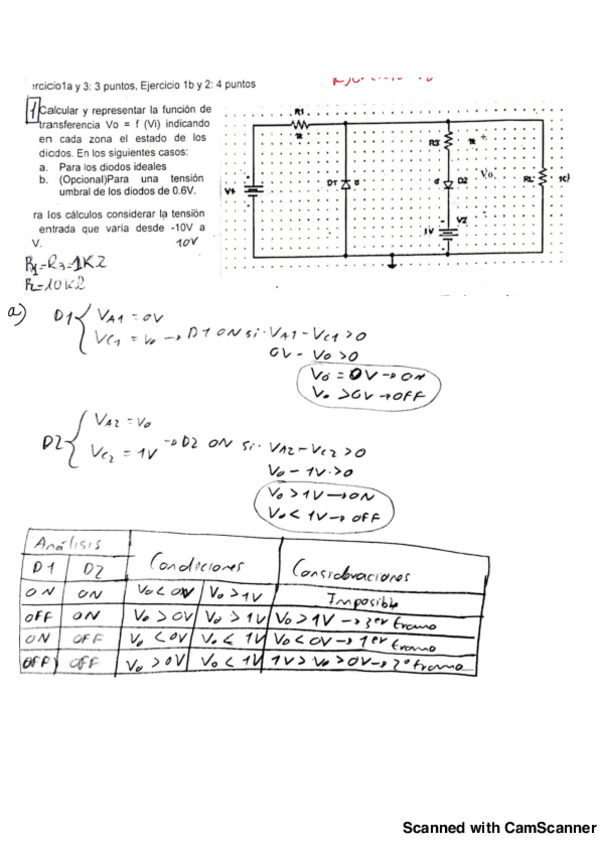 rcicio1a y 3: 3 puntos, Ejercicio 1b y 2: 4 puntos
1 Calcular y representar la función de
transferencia Vo = f (Vi) indicando
en cada zona el estado de los
diodos. En los siguientes casos:
a. Para los diodos ideales
b. (Opcional)Para una tensión
umbral de los diodos de 0.6V.
ra los cálculos considerar la tensión
entrada que varia desde -10V a
V. 10V
R1=R3=1KΩ
RL=10KΩ
R1
1k
R3
1k
+
V1
D1
D2
Vo
RL
V2
1V
-
a) D1 { VA1 = 0V
VC1 = Vo → D1 ON si · VA1 - VC1 > 0
0V - Vo > 0
Vo = 0V → ON
Vo > 0V → OFF
D2 { VA2 = Vo
VC2 = 1V → D2 ON si · VA2 - VC2 > 0
Vo - 1V > 0
Vo > 1V → ON
Vo < 1V → OFF
Análisis Condiciones Consideraciones
D1 D2
ON ON Vo < 0V Vo > 1V Imposible
OFF ON Vo > 0V Vo > 1V Vo > 1V → 3er tramo
ON OFF Vo < 0V Vo < 1V Vo < 0V → 1er tramo
OFF OFF Vo > 0V Vo < 1V 1V > Vo > 0V → 2º tramo
Scanned with CamScanner